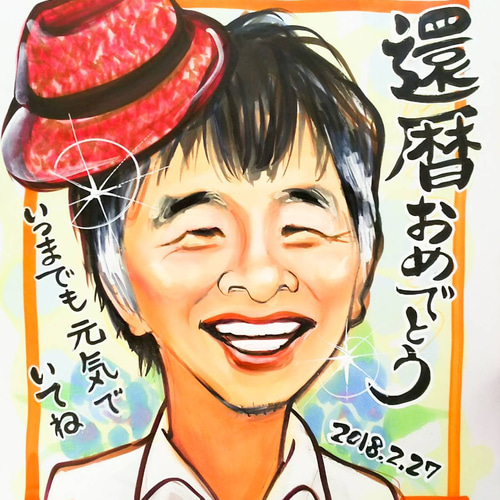 還暦おめでとう
いつまでも元気で
いてね
2018.2.27